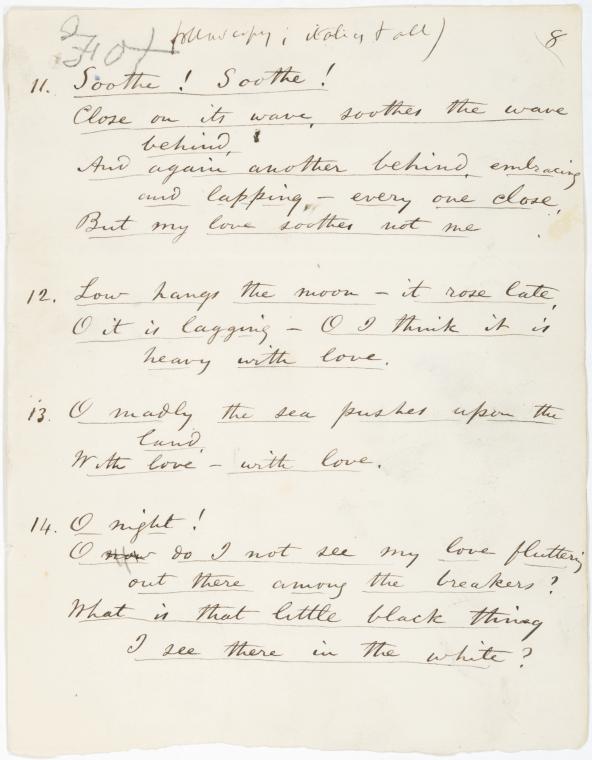 follow copy; italics & all) 8
11. Soothe! Soothe!
Close on its wave, soothes the wave
behind,
And again another behind, embracing
and lapping, – every one close,
But my love soothes not me
12. Low hangs the moon – it rose late,
O it is lagging – O I think it is
heavy with love.
13. O madly the sea pushes upon the
land,
With love – with love.
14. O night!
O do I not see my love fluttering
out there among the breakers?
What is that little black thing
I see there in the white?